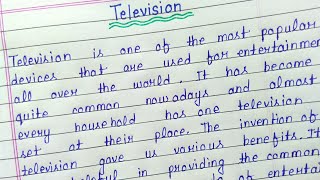 Television
Television is one of the most popular
devices that are used for entertainmen
all over the world. It has become
quite common nowadays and almost
every household has one television
set at their place. The invention of
television gave us various benefits. It
helpful in providing the common
of enterta